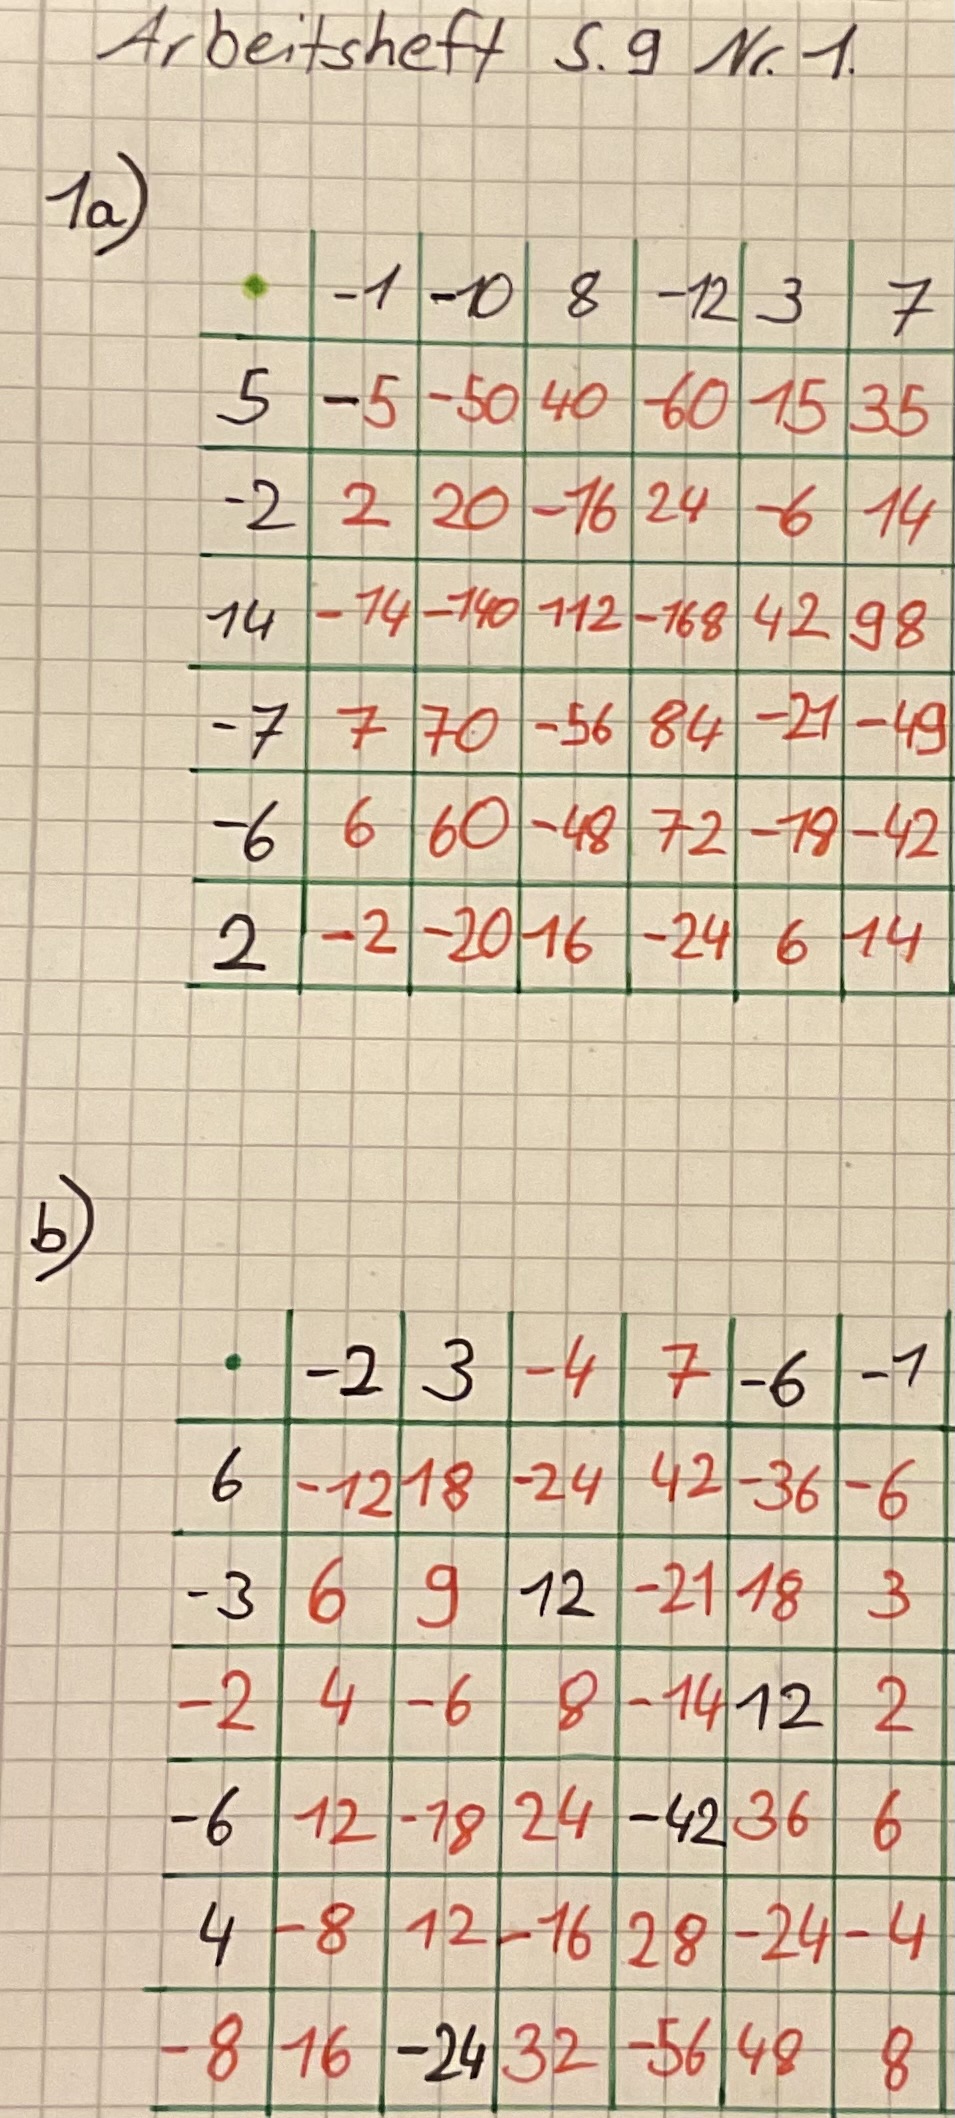 Arbeitsheft S.9 Nr. 1.
1a)
· -1 -10 8 -12 3 7
5 -5 -50 40 -60 15 35
-2 2 20 -16 24 -6 14
14 -14 -140 112 -168 42 98
-7 7 70 -56 84 -21 -49
-6 6 60 -48 72 -18 -42
2 -2 -20 16 -24 6 14
b)
· -2 3 -4 7 -6 -1
6 -12 18 -24 42 -36 -6
-3 6 9 12 -21 18 3
-2 4 -6 8 -14 12 2
-6 12 -18 24 -42 36 6
4 -8 12 -16 28 -24 -4
-8 16 -24 32 -56 48 8